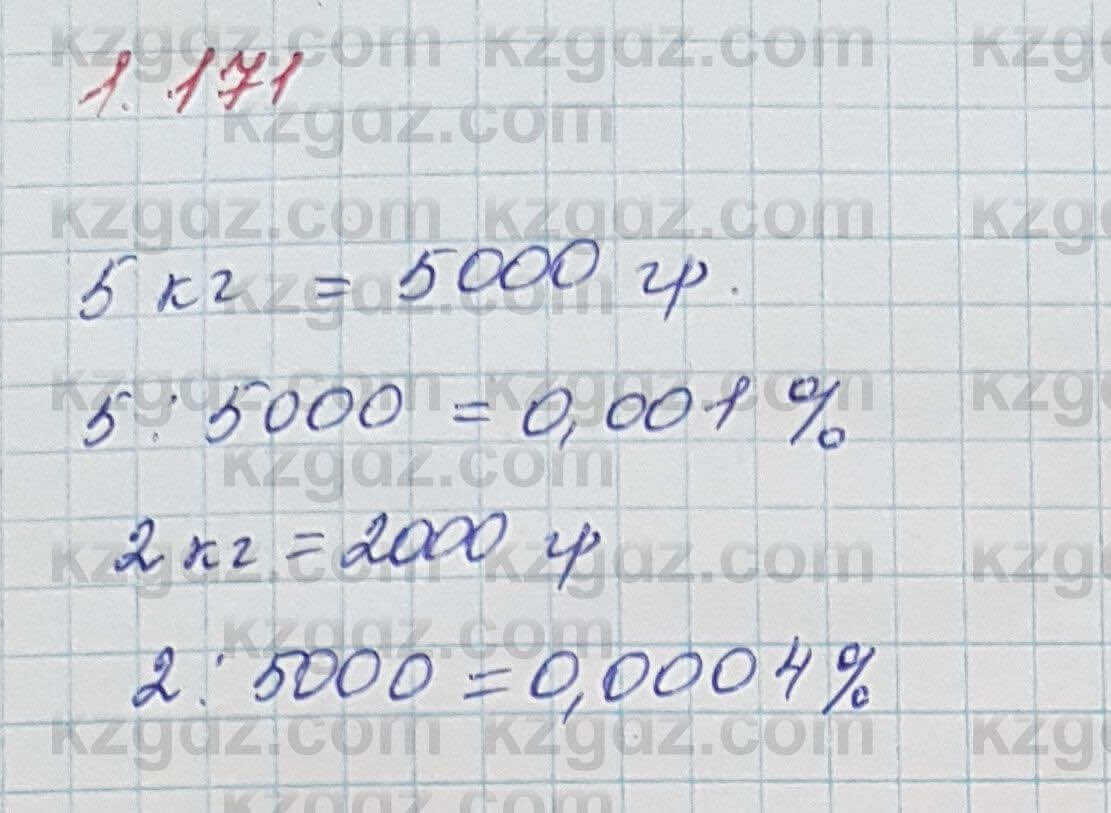 kzgdz.com kzgdz.com kzg
1.171
kzgdz.com
kzgdz.com kzgdz.com kzg
5 кг = 5000 гр.
kzgdz.com
kzgdz.com kzgdz.com kzg
5 : 5000 = 0,001 %
kzgdz.com
2 кг = 2000 гр
kzgdz.com kzgdz.com kzg
kzgdz.com
2 : 5000 = 0,0004 %
kzgdz.com kzgdz.com kzg
kzgdz.com